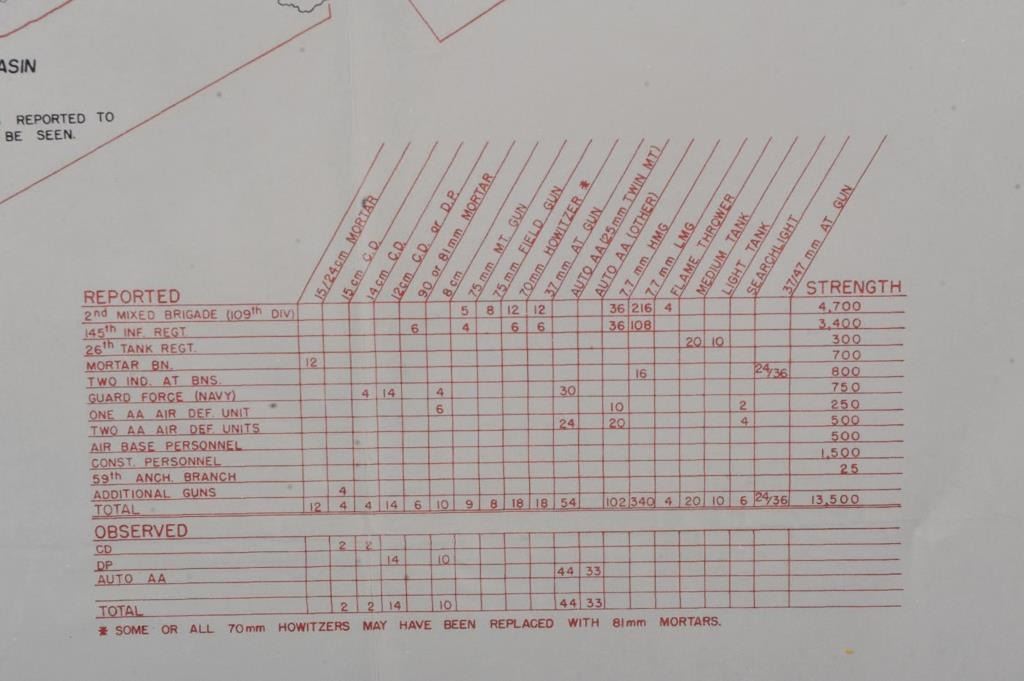 ASIN
REPORTED TO
BE SEEN.
15/24cm MORTAR
15cm C.D.
14cm C.D.
12cm C.D. or D.P.
90 or 81mm MORTAR
8cm
75mm MT. GUN
75mm FIELD GUN
70mm HOWITZER *
37mm AT GUN
AUTO AA (25mm TWIN MT)
AUTO AA (OTHER)
7.7 mm HMG
7.7 mm LMG
FLAME THROWER
MEDIUM TANK
LIGHT TANK
SEARCHLIGHT
37/47 mm AT GUN
REPORTED STRENGTH
2nd MIXED BRIGADE (109th DIV) 5 8 12 12 36 216 4 4,700
145th INF. REGT. 6 4 6 6 36 108 3,400
26th TANK REGT. 20 10 300
MORTAR BN. 12 700
TWO IND. AT BNS. 16 24/36 800
GUARD FORCE (NAVY) 4 14 4 30 750
ONE AA AIR DEF. UNIT 6 10 2 250
TWO AA AIR DEF. UNITS 24 20 4 500
AIR BASE PERSONNEL 500
CONST. PERSONNEL 1,500
59th ANCH. BRANCH 25
ADDITIONAL GUNS 4
TOTAL 12 4 4 14 6 10 9 8 18 18 54 102 340 4 20 10 6 24/36 13,500
OBSERVED
CD 2 2
DP 14 10
AUTO AA 44 33
TOTAL 2 2 14 10 44 33
* SOME OR ALL 70mm HOWITZERS MAY HAVE BEEN REPLACED WITH 81mm MORTARS.